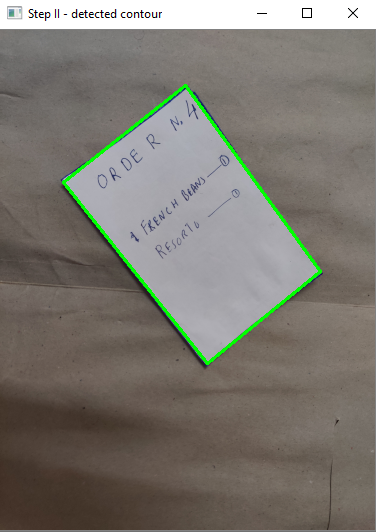 Step II - detected contour
ORDER N. 4
1 FRENCH BEANS — ①
RESORTO — ①